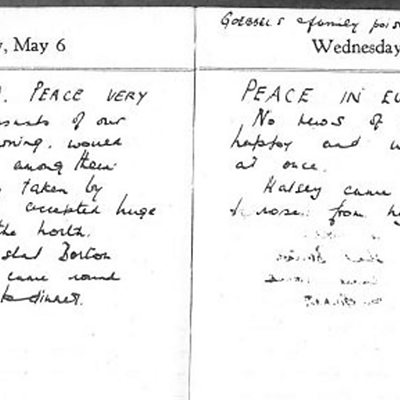 y, May 6
PEACE VERY
of our
would
among them
taken by
accepted huge
the north.
Borton
came round
to dinner.
Goebbels & family pois
Wednesday
PEACE IN EU
No news of
happy and
at once.
Halsey came
& rose: from